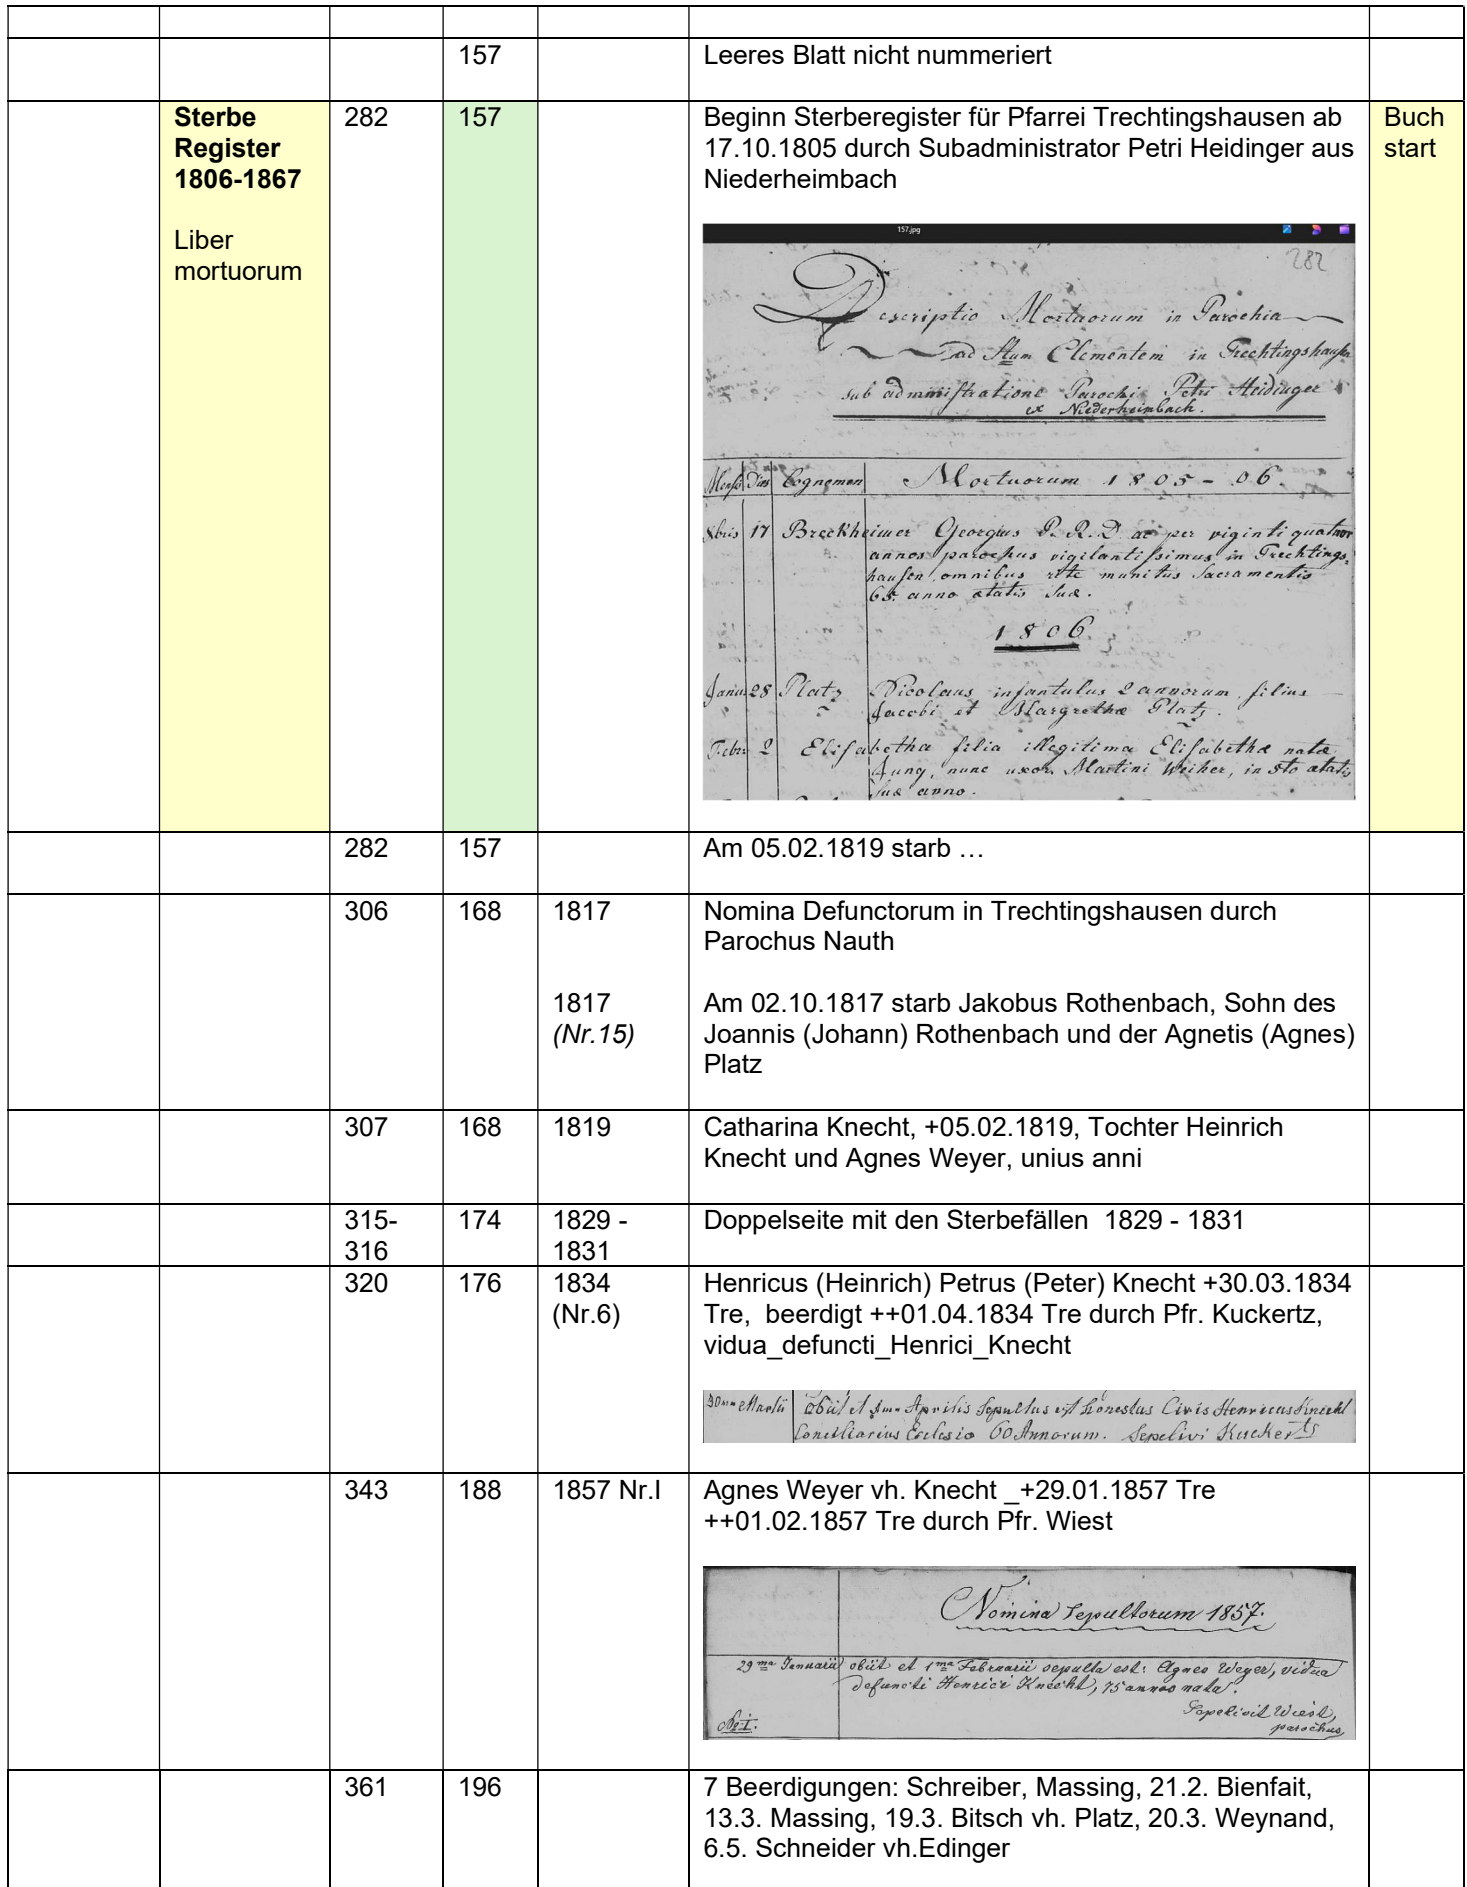 157 Leeres Blatt nicht nummeriert
Sterbe 282 157 Beginn Sterberegister für Pfarrei Trechtingshausen ab Buch
Register 17.10.1805 durch Subadministrator Petri Heidinger aus start
1806-1867 Niederheimbach
Liber
mortuorum
157.jpg
282
Descriptio Mortuorum in Parochia
ad Stum Clementem in Trechtingshausen
sub administratione Parochi Petri Heidinger
ex Niederheimbach.
Mensis Dies Cognomen Mortuorum 1805 - 06.
Xbris 17 Breckheimer Georgius P. R. D. ac per viginti quatuor
annos parochus vigilantissimus in Trechtings-
hausen, omnibus rite munitus Sacramentis
65. anno ætatis suæ.
1806
Janu. 28 Platz Nicolaus infantulus 2 annorum, filius
Jacobi et Margrethæ Platz.
Febr. 2 Elisabetha filia illegitima Elisabethæ natæ
Jung, nunc uxor. Martini Weiher, in 5to ætatis
suæ anno.
282 157 Am 05.02.1819 starb …
306 168 1817 Nomina Defunctorum in Trechtingshausen durch
Parochus Nauth
1817 Am 02.10.1817 starb Jakobus Rothenbach, Sohn des
(Nr.15) Joannis (Johann) Rothenbach und der Agnetis (Agnes)
Platz
307 168 1819 Catharina Knecht, +05.02.1819, Tochter Heinrich
Knecht und Agnes Weyer, unius anni
315- 174 1829 - Doppelseite mit den Sterbefällen 1829 - 1831
316 1831
320 176 1834 Henricus (Heinrich) Petrus (Peter) Knecht +30.03.1834
(Nr.6) Tre, beerdigt ++01.04.1834 Tre durch Pfr. Kuckertz,
vidua_defuncti_Henrici_Knecht
30ma Martii Obiit et 1ma Aprilis Sepultus est honestus Civis Henricus Knecht
Consiliarius Eclesio 60 Annorum. Sepelivi Kuckerts
343 188 1857 Nr.I Agnes Weyer vh. Knecht _+29.01.1857 Tre
++01.02.1857 Tre durch Pfr. Wiest
Nomina Sepultorum 1857.
29ma Januarii obiit et 1ma Februarii sepulta est: Agnes Weyer, vidua
defuncti Henrici Knecht, 75 annos nata.
Sepelivit Wiest,
No. I. parochus,
361 196 7 Beerdigungen: Schreiber, Massing, 21.2. Bienfait,
13.3. Massing, 19.3. Bitsch vh. Platz, 20.3. Weynand,
6.5. Schneider vh.Edinger